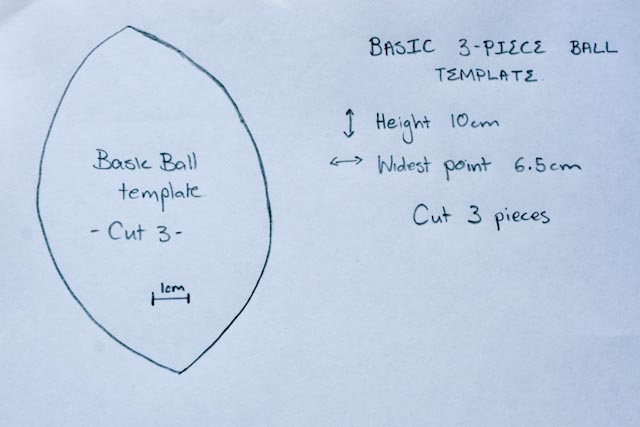 BASIC 3-PIECE BALL
TEMPLATE
Height 10cm
Widest point 6.5cm
Cut 3 pieces
Basic Ball
template
- Cut 3 -
1cm